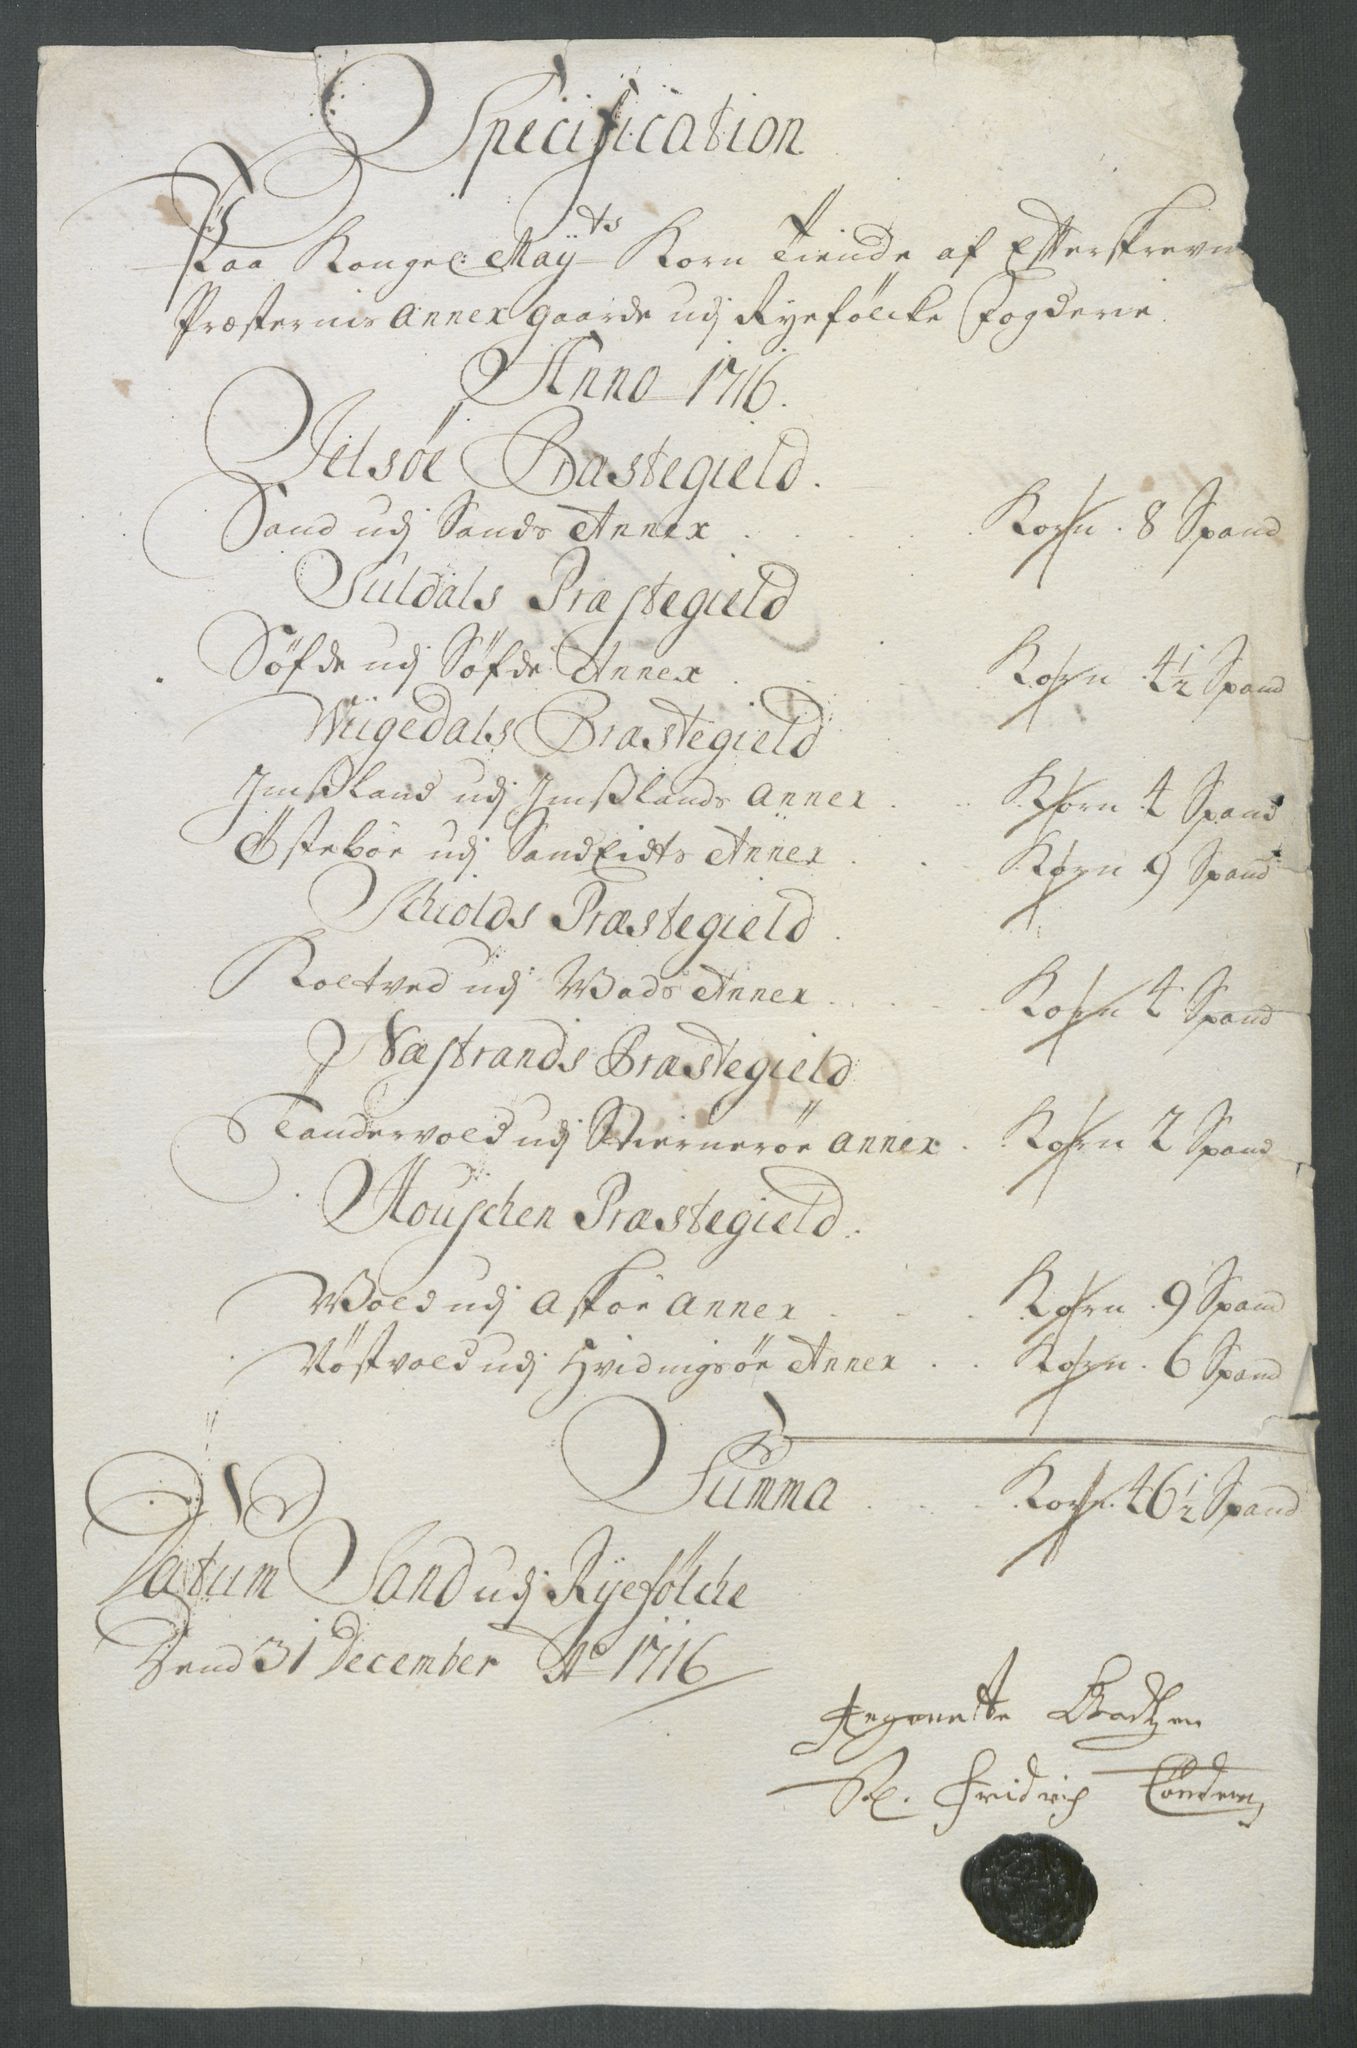 Specification
Paa Kongel: Mayts Korn Tiende af Efterskrevne
Præsternis Annex gaarde udj Ryefølcke Fogderie
Anno 1716.
Jelsøe Præstegield.
Sand udj Sands Annex . . . . Korn . 8 Spand
Suldals Præstegield
Søfde udj Søfde Annex . . . . Korn 4½ Spand
Wiigedals Præstegield
Imsland udj Imslands Annex . . . Korn 4 Spand
Østebøe udj Sandeidts Annex . . Korn 9 Spand
Schiolds Præstegield
Koltved udj Wads Annex . . . . Korn 4 Spand
Næstrands Præstegield
Tandervold udj Stiernerøe Annex . Korn 2 Spand
Houschen Præstegield.
Wold udj Askøe Annex . . . Korn . 9 Spand
Nøstvold udj Hvidingsøe Annex . . Korn . 6 Spand
Summa . . . Korn. 46½ Spand
Datum Sand udj Ryefølche
Dend 31 December Ao 1716
Sl. Fridrich Tønders